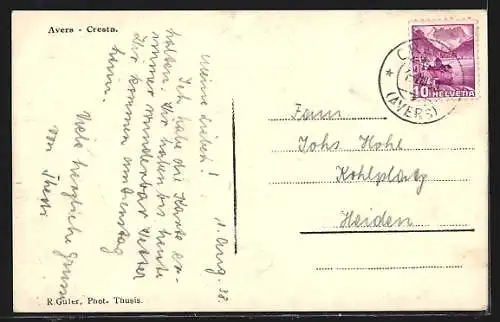 Avers - Cresta.
1. Aug. 38.
Meine Lieben!
Ich habe die Karte er-
halten. Wir haben bis heute
immer wunderbar Wetter
Wir kommen am Dienstag
heim.
Viele herzliche Grüsse
von Thesi
R. Guler, Phot. Thusis.
CRESTA
(AVERS)
10 HELVETIA
Fam
Johs Hohl
Kohlplatz
Heiden